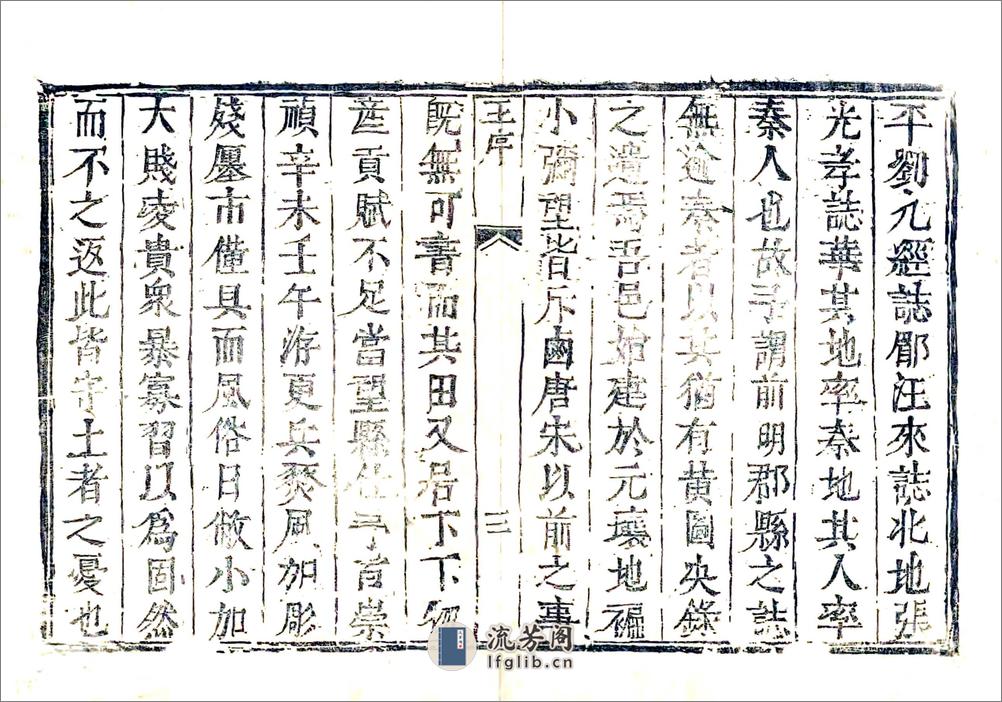 平劉九經誌郿汪來誌北地張
光孝誌華其地率秦地其人率
秦人也故予謂前明郡縣之誌
無逾秦者以其猶有黃圖决錄
之遺焉吾邑始建於元壤地褊
小彌望皆斥鹵唐宋以前之事
王序 三
旣無可書而其田又居下下物
産貢賦不足當望縣崇
禎辛未壬午洊更兵燹風加彫
殘廛市僅具而風俗日敝小加
大賤凌貴衆暴寡習以爲固然
而不之返此皆守土者之憂也
流芳阁
lfglib.cn